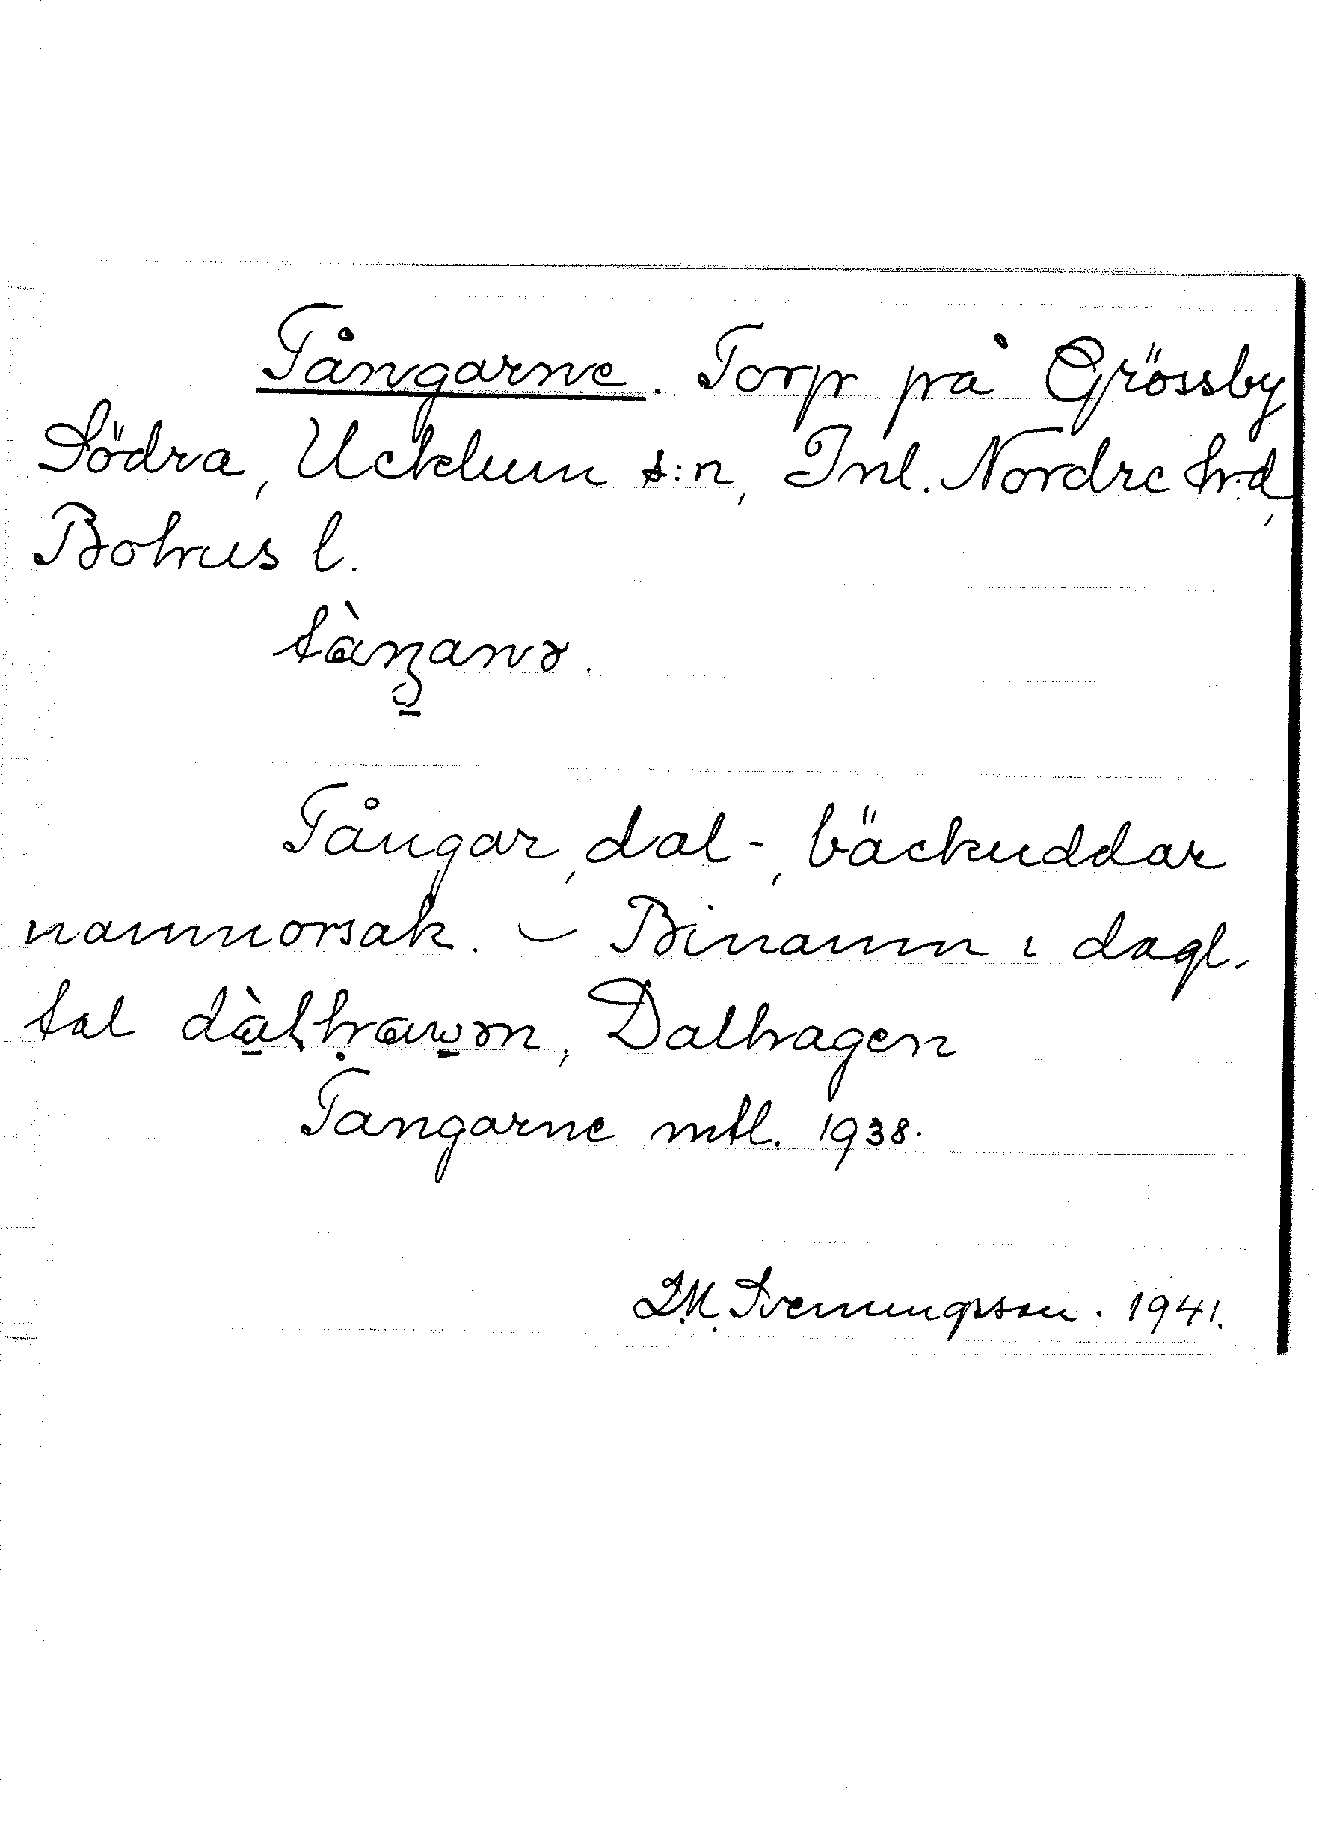 Tångarne. Torp på Grössby
Södra, Ucklum s:n, Inl. Nordre hrd,
Bohus l.
tàŋanə.
Tångar, dal-, bäckuddar
namnorsak. – Binamn i dagl.
tal Dalhagen
Tangarne mtl. 1938.
D.M. Svenungsson. 1941.